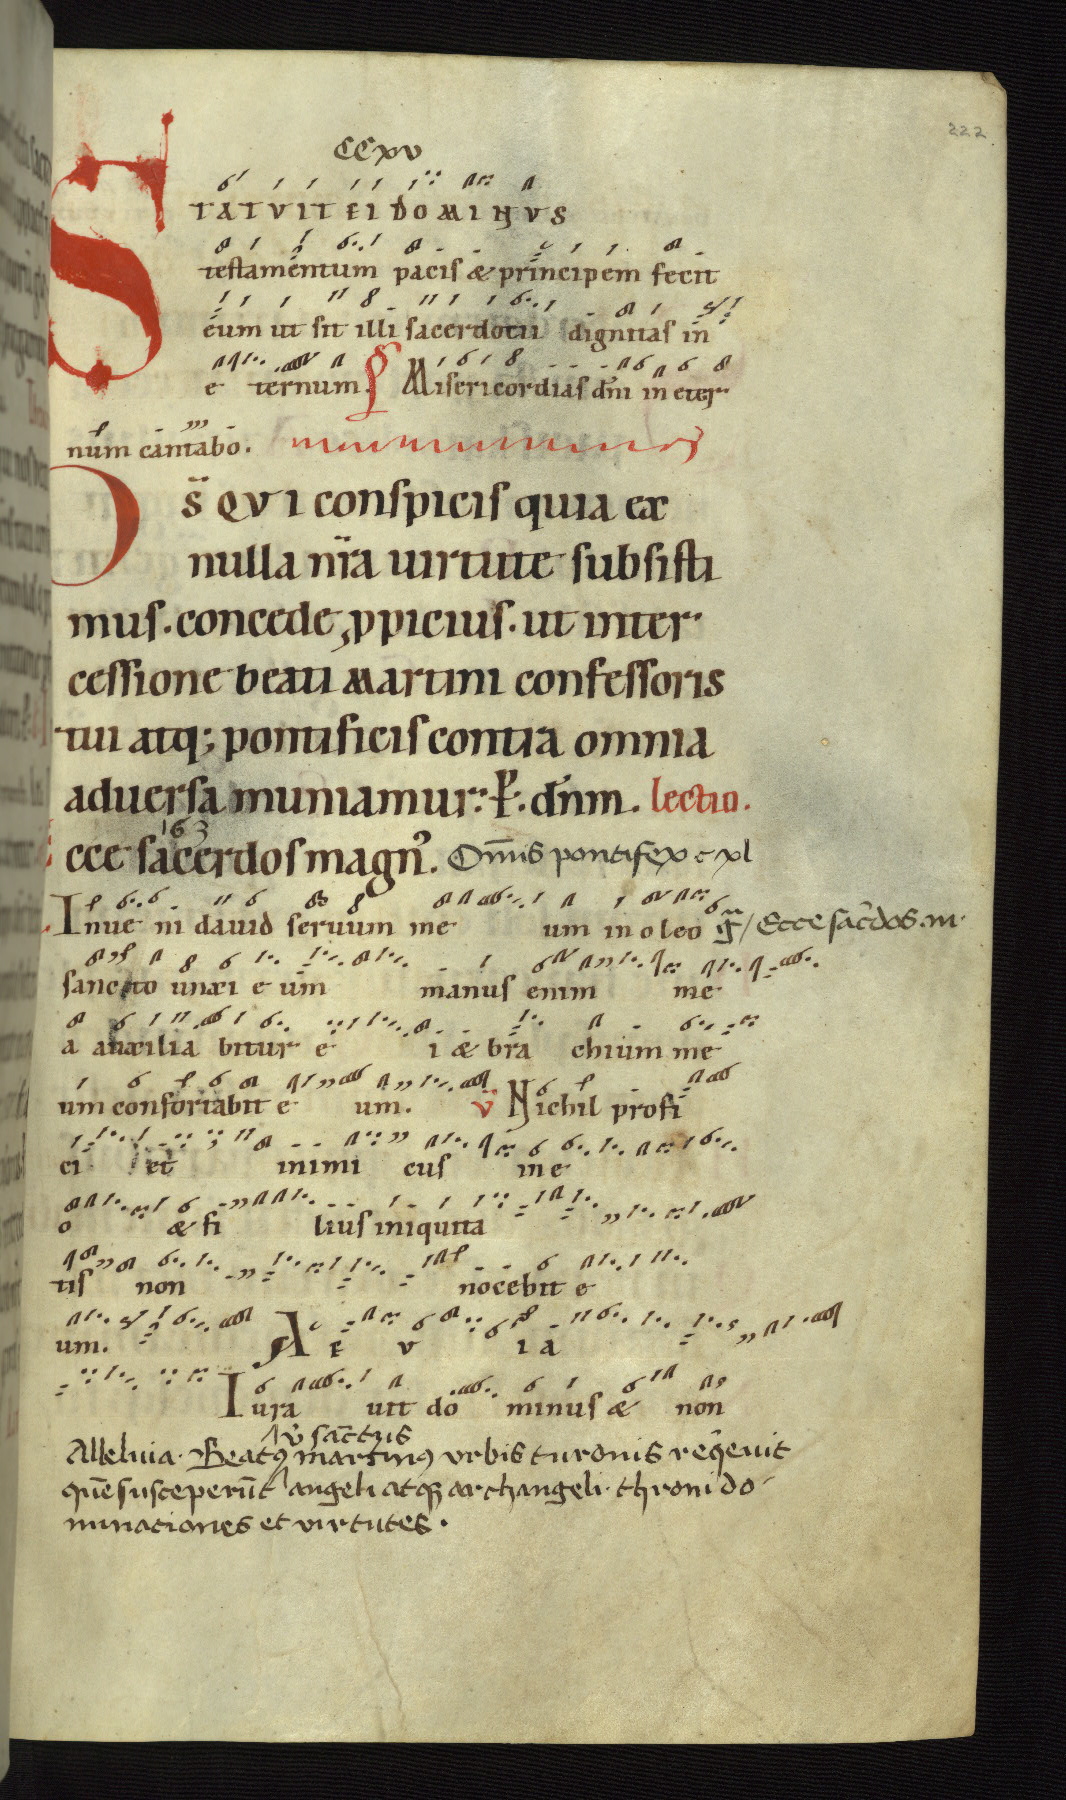 222
CCxv
STATVIT EI DOMINVS
testamentum pacis & principem fecit
eum ut sit illi sacerdotii dignitas in
e ternum. Ps Misericordias dni in eter
num cantabo.
DS QVI conspicis quia ex
nulla nra uirtute subsisti
mus. concede ppicius. ut inter
cessione beati Martini confessoris
tui atq; pontificis contra omnia
aduersa muniamur. P. dnm. lectio.
163
Ecce sacerdos magn9. Omis pontifex c xl
Inue ni dauid seruum me um in oleo Gr Ecce sacdos. m.
sancto unxi e um manus enim me
a auxilia bitur e i & bra chium me
um confortabit e um. V Nichil profi
ci et inimi cus in e
o & fi lius iniquita
tis non nocebit e
um. A E V I A
Iura uit do minus & non
V sactus
Alleluia. Beat9 martin9 vrbis turonis reqeuit
que susceperut angeli atq archangeli. throni do
minaciones et virtutes.